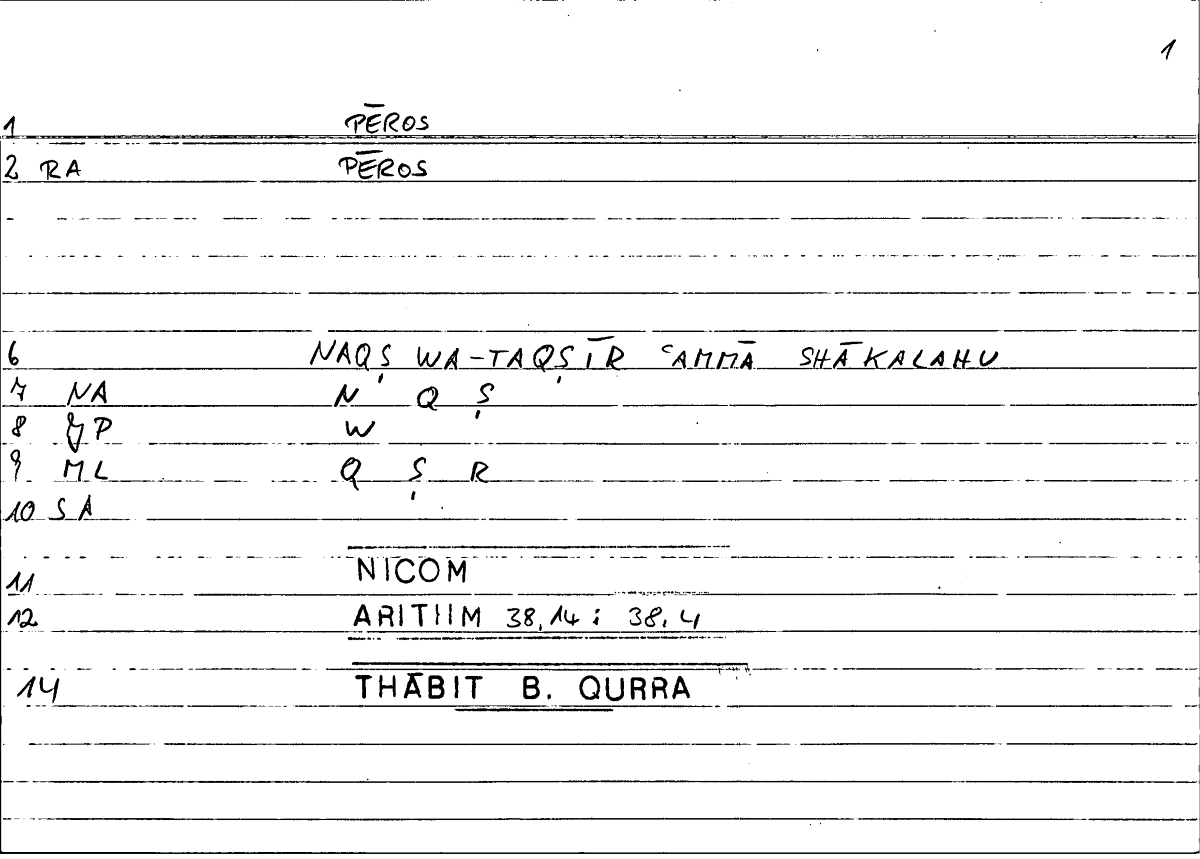 1
1 PĒROS
2 RA PĒROS
6 NAQṢ WA-TAQṢĪR ʿAMMĀ SHĀKALAHU
7 NA N Q Ṣ
8 JP W
9 ML Q Ṣ R
10 SA
11 NICOM
12 ARITHM 38,14 : 38,4
14 THĀBIT B. QURRA